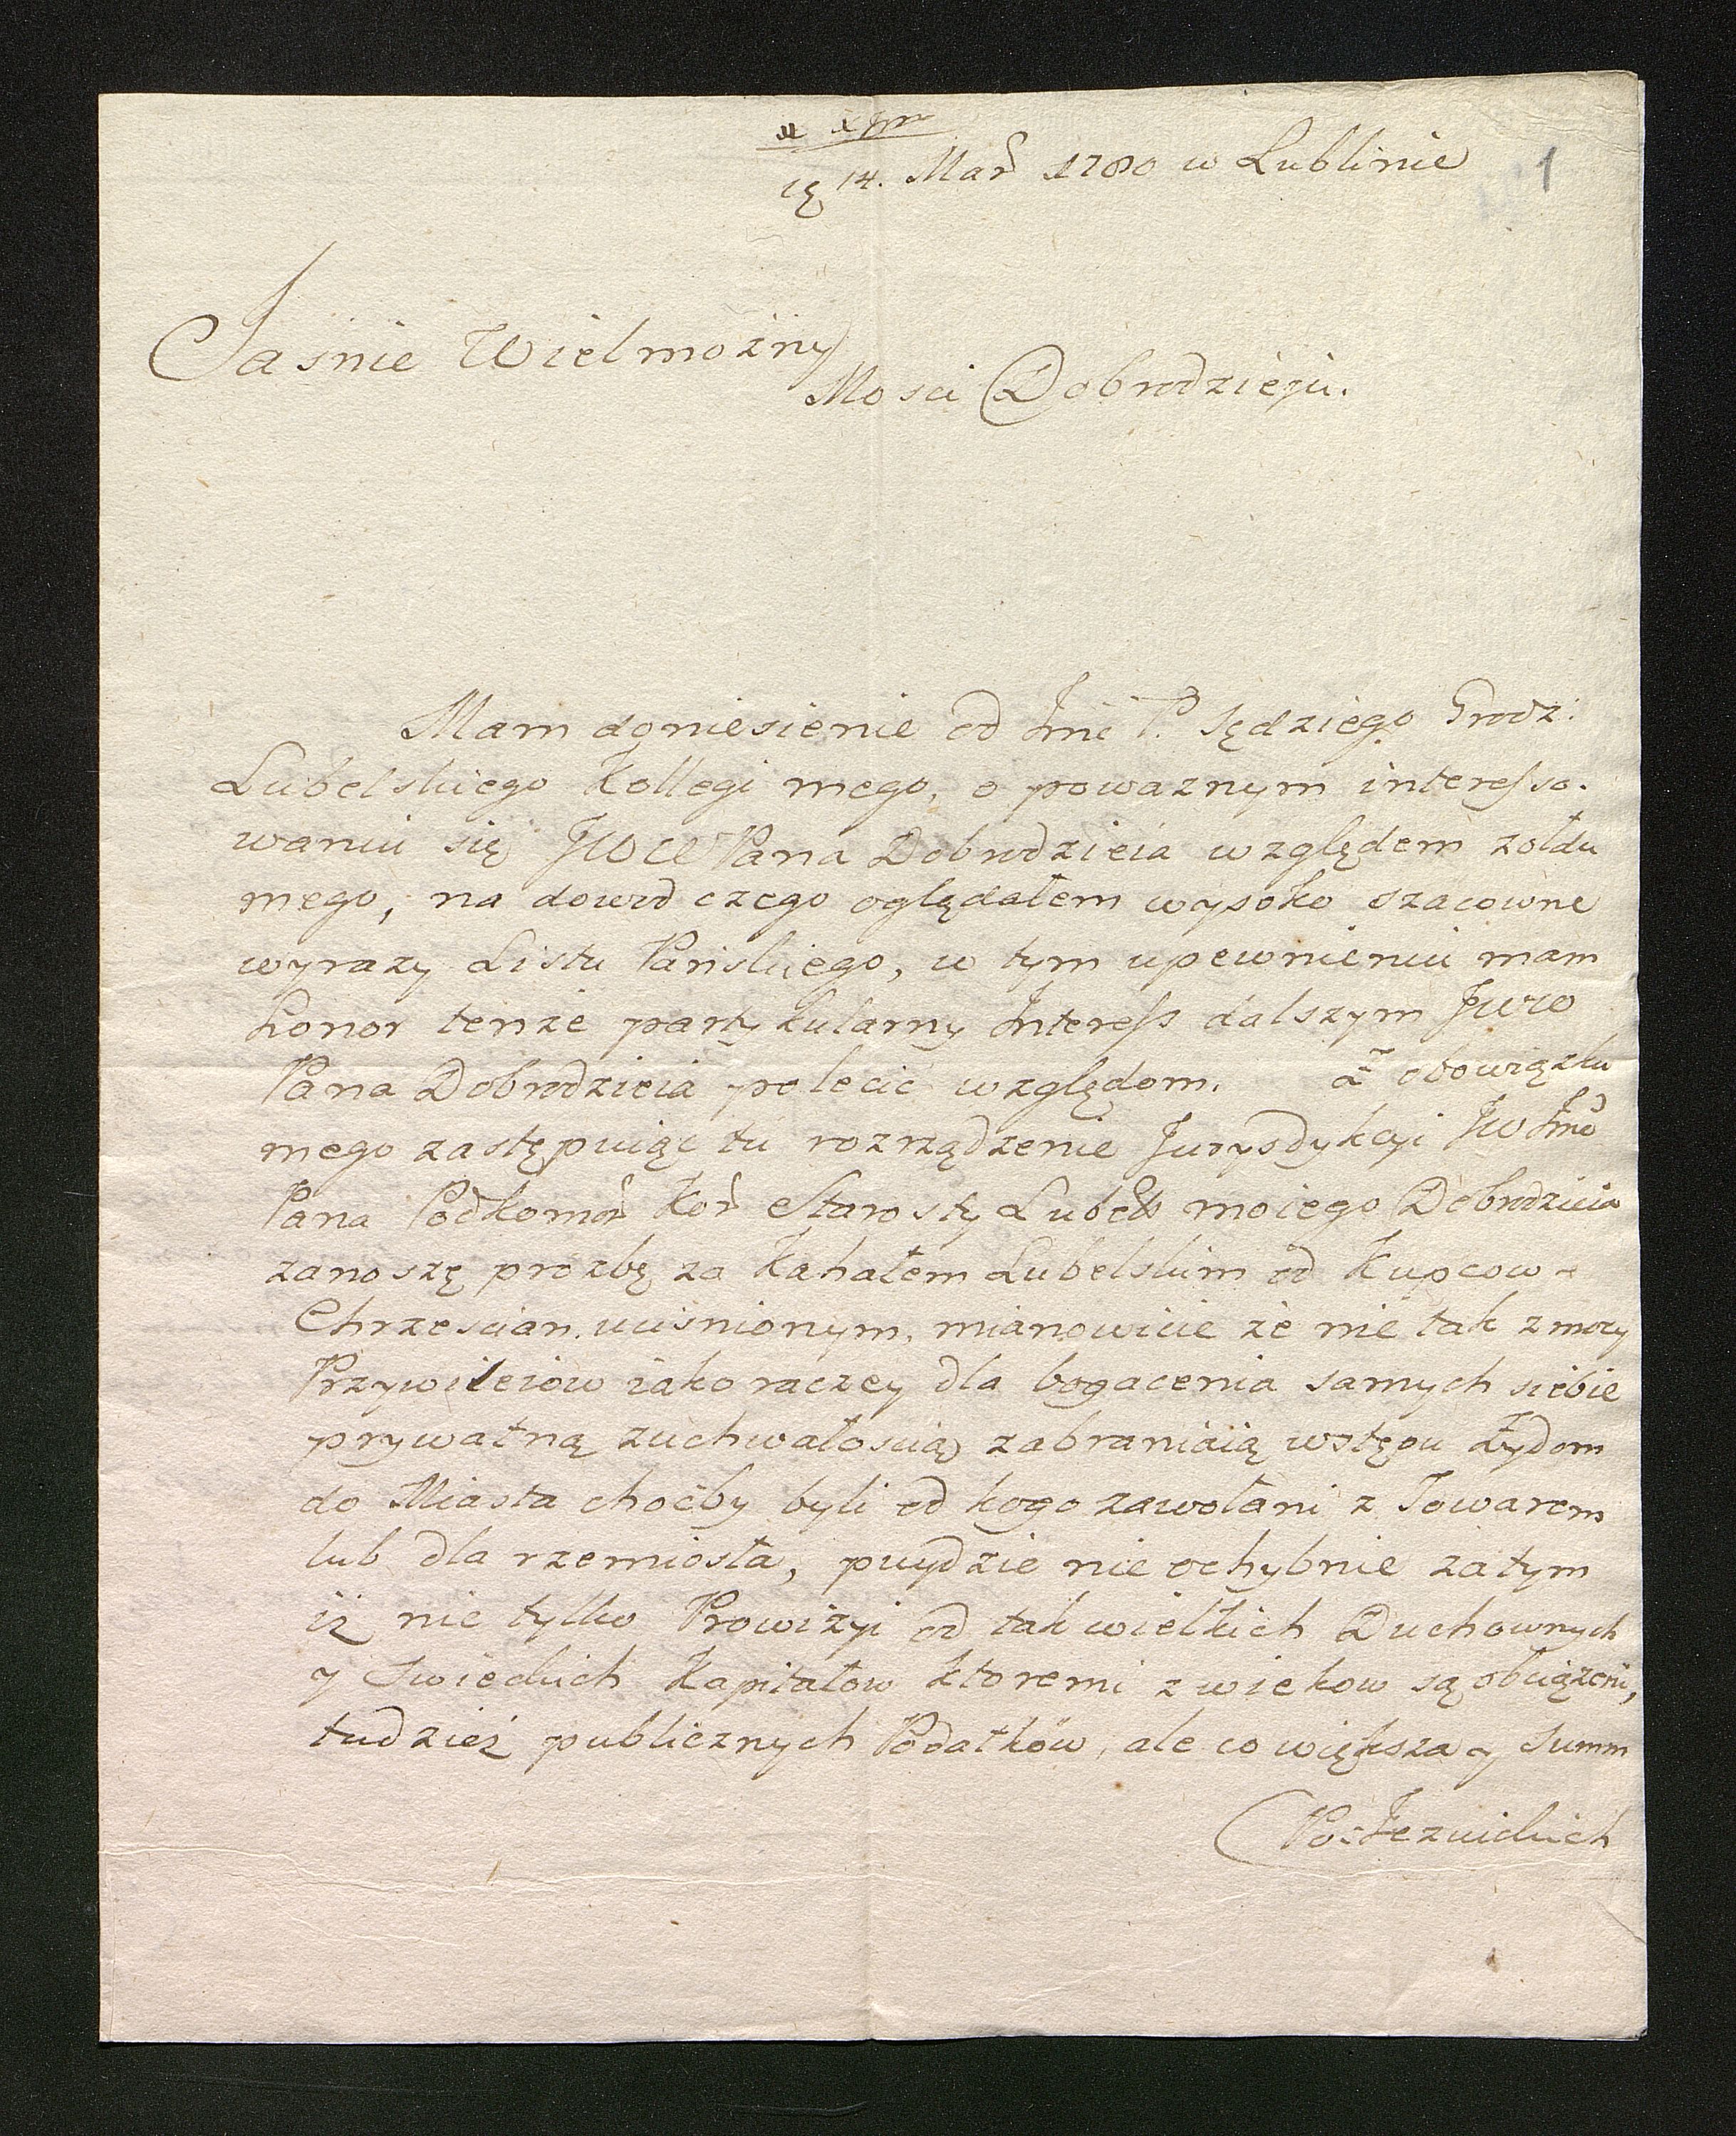 14. Mar 1780 w Lublinie
1
Jaśnie Wielmożny
Mosci Dobrodzieju.
Mam doniesienie od Jmći P. Sędziego Grodz:
Lubelskiego Kollegi mego, o powaznym interesso-
waniu się JWW Pana Dobrodzieia względem żołdu
mego, na dowod czego oglądałem wysoko szacowne
wyrazy Listu Pańskiego, w tym upewnieniu mam
honor tenże partykularny Interess dalszym JWW
Pana Dobrodzieia polecić względom. Z obowiązku
mego zastępuiąc tu rozrządzenie Jurysdykcyi JW Jmć
Pana Podkomor Kor Starosty Lubels moiego Dobrodzieia
zanoszę prozbę za Kahałem Lubelskim od Kupcow
Chrzescian ucisnionym, mianowicie że nie tak z mocy
Przywileiow iako raczey dla bogacenia samych siebie
prywatną zuchwałoscią zabraniaią wstępu Żydom
do Miasta choćby byli od kogo zawołani z Towarem
lub dla rzemiosła, puydzie nieochybnie zatym
iż nie tylko Prowizyi od tak wielkich Duchownych
y Swieckich Kapitałow ktoremi z wiekow są obciążeni,
tudzież publicznych Podatków, ale co większa y Summ
Po-Jezuickich